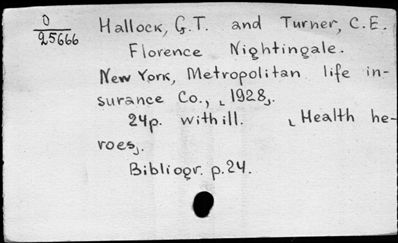 0
25666
Hallock, G.T. and Turner, C.E.
Florence Nightingale.
New York, Metropolitan life in-
surance Co., [1928].
24p. with ill. [Health he-
roes].
Bibliogr. p.24.